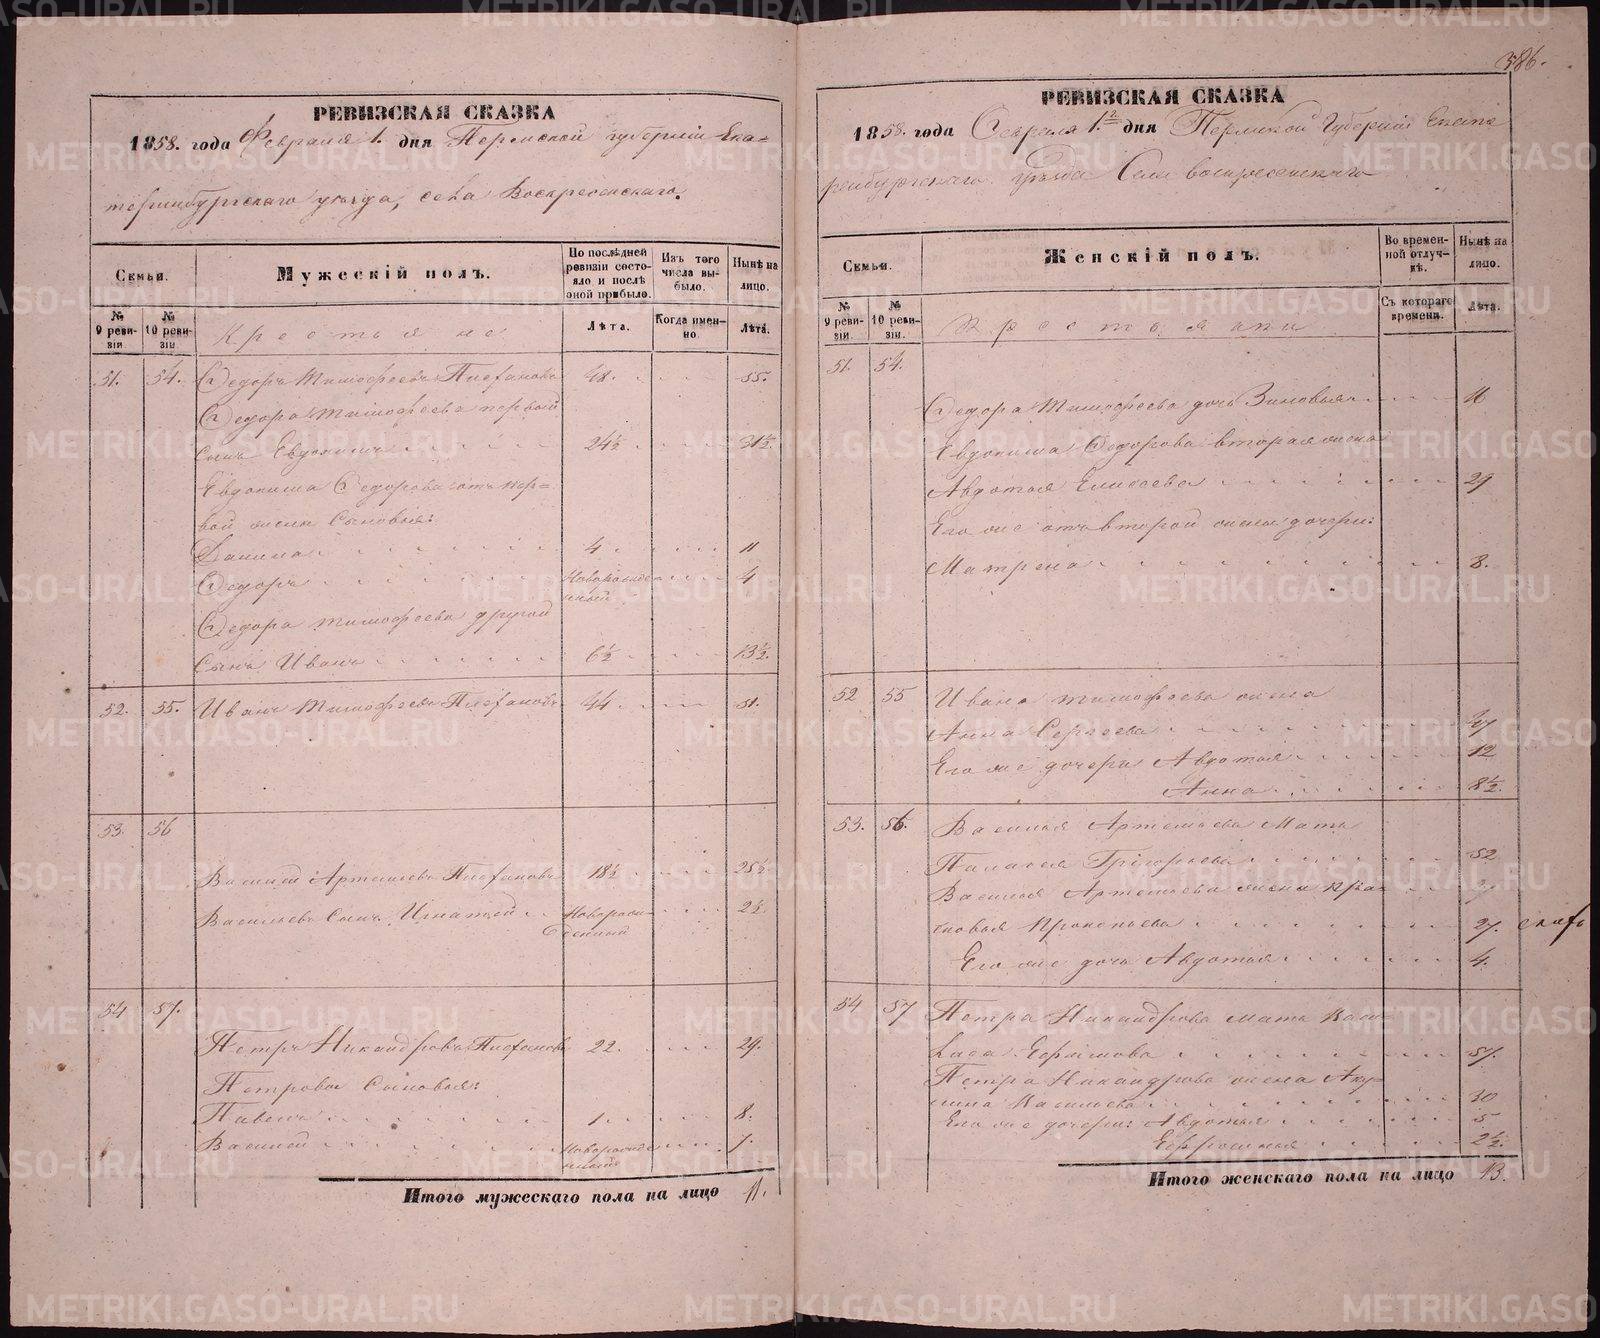 586.
РЕВИЗСКАЯ СКАЗКА
1858. года Февраля 1. дня Пермской губернiи Ека=
теринбургскаго уѣзда, села Воскресенскаго.
Семьи.
Мужескiй полъ.
По послѣдней ревизiи состояло и послѣ оной прибыло.
Изъ того числа выбыло.
Нынѣ на лицо.
№ 9 ревизiи
№ 10 ревизiи
Крестьяне
Лѣта.
Когда именно.
Лѣта.
51. 54. Федоръ Тимофеевъ 48. 55.
Федора Тимофеева первый
сынъ Евдокимъ 24½ 31½
Евдокима Федорова отъ пер=
вой жены сыновья:
Данила 4 11
Федоръ Новорожде 4
нный
Федора Тимофеева другой
сынъ Иванъ 6½ 13½
52. 55. Иванъ Тимофеевъ 44. 51.
53. 56
Василiй Артемьевъ 18½ 25½
Васильевъ сынъ Игнатей Новорож- 2½
денный
54 57.
Петръ Никандровъ 22. 29.
Петровы сыновья:
Павелъ 1. 8.
Василей Новорожде 7.
нный
Итого мужескаго пола на лицо 11.
РЕВИЗСКАЯ СКАЗКА
1858. года Февраля 1. дня Пермской Губернiи Екате
ринбургскаго Уѣзда Села воскресенскаго
Семьи.
Женскiй полъ.
Во временной отлучкѣ.
Нынѣ на лицо.
№ 9 ревизiи.
№ 10 ревизiи.
Крестьянки
Съ котораго времени.
Лѣта.
51. 54.
Федора Тимофеева дочь Зиновья 11
Евдокима Федорова вторая жена
Авдотья Елисеева 29
Его же отъ второй жены дочери:
Матрена 8.
52 55 Ивана Тимофеева жена
Анна Сергеева
Его же дочери Авдотья 12
Анна 8½.
53. 56. Василья Артемьева мать
Палагея Григорьева 52
Василья Артемьева жена Пра
сковья Прокопьева 27.
Его же дочь Авдотья 4.
54 57 Петра Никандрова мать Васи
лиса Ефимова 57.
Петра Никандрова жена Аку
лина Васильева 30
Его же дочери: Авдотья 5
Ефросинья 2½.
Итого женскаго пола на лицо 13.
METRIKI.GASO-URAL.RU